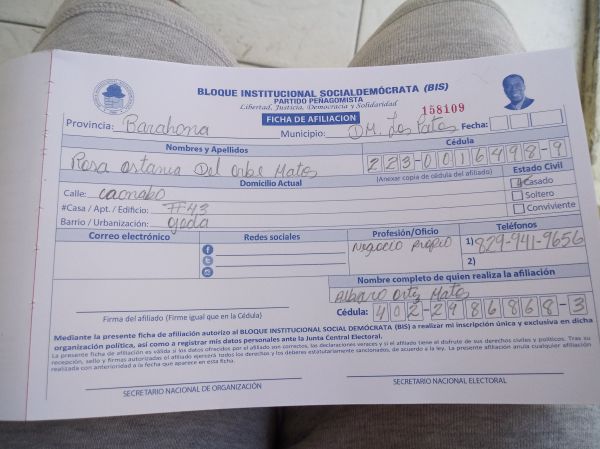 BLOQUE INSTITUCIONAL SOCIALDEMÓCRATA (BIS)
PARTIDO PEÑAGOMISTA
Libertad, Justicia, Democracia y Solidaridad
158109
FICHA DE AFILIACION
Provincia: Barahona Municipio: DM. Los Patos Fecha:
Nombres y Apellidos Cédula
Rosa Ostania Del Orbe Matos 223-0016498-9
Domicilio Actual (Anexar copia de cédula del afiliado) Estado Civil
Calle: caonabo Casado
#Casa / Apt. / Edificio: #43 Soltero
Barrio / Urbanización: Ojeda Conviviente
Correo electrónico Redes sociales Profesión/Oficio Teléfonos
Negocio Propio 1) 829-941-9656
2)
Nombre completo de quien realiza la afiliación
Albaro Ortiz Matos
Cédula: 402-2486868-3
Firma del afiliado (Firme igual que en la Cédula)
Mediante la presente ficha de afiliación autorizo al BLOQUE INSTITUCIONAL SOCIALDEMÓCRATA (BIS) a realizar mi inscripción única y exclusiva en dicha
organización política, así como a registrar mis datos personales ante la Junta Central Electoral.
La presente ficha de afiliación es válida si los datos ofrecidos por el afiliado son correctos, las declaraciones veraces y si el afiliado tiene el disfrute de sus derechos civiles y políticos. Tras su
recepción, sello y firmas autorizadas el afiliado ejercerá todos los derechos y los deberes estatutariamente sancionados, de acuerdo a la ley. La presente afiliación anula cualquier afiliación
realizada con anterioridad a la fecha que aparece en esta ficha.
SECRETARIO NACIONAL DE ORGANIZACIÓN SECRETARIO NACIONAL ELECTORAL